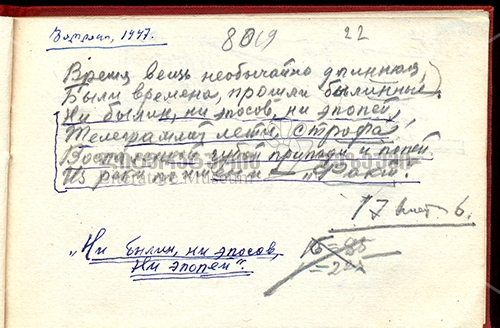 1947.
8019
22
Время вещь необычайно длинная,
Были времена, прошли былинные.
Ни былин, ни эпосов, ни эпопей,
Телеграммой лети, строфа,
губой припади и попей
Из реки по имени "Факт".
17
"Ни былин, ни эпосов,
Ни эпопей".
16 = 85